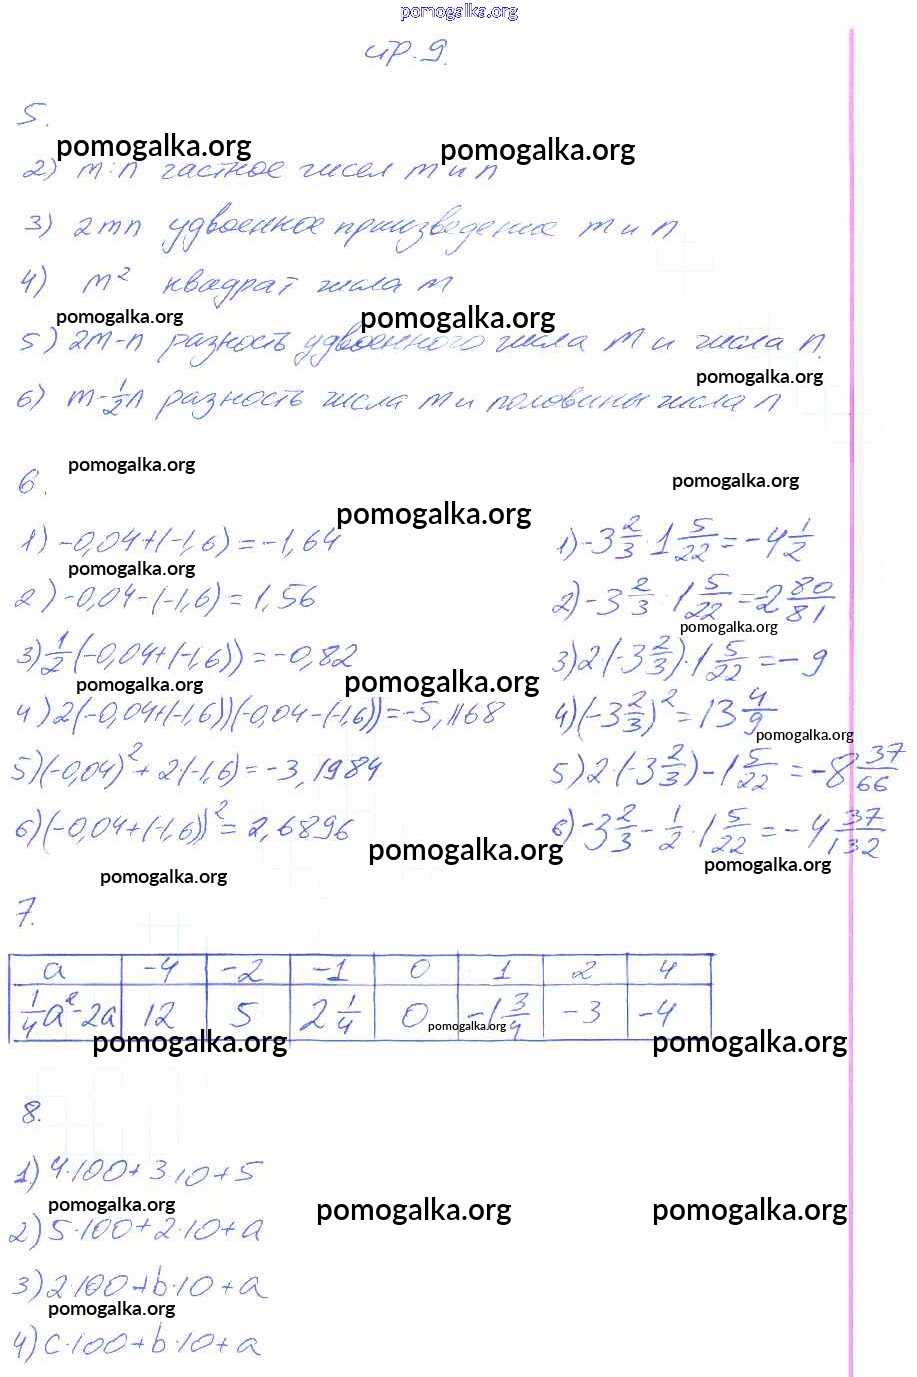 pomogalka.org
стр. 9.
5.
pomogalka.org pomogalka.org
2) m:n частное чисел m и n
3) 2mn удвоенное произведение m и n
4) m² квадрат числа m
pomogalka.org pomogalka.org
5) 2m-n разность удвоенного числа m и числа n.
pomogalka.org
6) m-1/2n разность числа m и половины числа n
6.
pomogalka.org pomogalka.org
pomogalka.org
1) -0,04+(-1,6)=-1,64
pomogalka.org
2) -0,04-(-1,6)=1,56
3) 1/2(-0,04+(-1,6))=-0,82
pomogalka.org pomogalka.org
4) 2(-0,04+(-1,6))(-0,04-(-1,6))=-5,1168
5) (-0,04)²+2(-1,6)=-3,1984
6) (-0,04+(-1,6))²=2,6896
pomogalka.org
pomogalka.org
1) -3 2/3·1 5/22=-4 1/2
2) -3 2/3:1 5/22=-2 80/81
pomogalka.org
3) 2(-3 2/3)·1 5/22=-9
4) (-3 2/3)²=13 4/9
pomogalka.org
5) 2·(-3 2/3)-1 5/22=-8 37/66
6) -3 2/3-1/2·1 5/22=-4 37/132
pomogalka.org
7.
a -4 -2 -1 0 1 2 4
1/4a²-2a 12 5 2 1/4 0 -1 3/4 -3 -4
pomogalka.org
pomogalka.org pomogalka.org
8.
1) 4·100+3·10+5
pomogalka.org pomogalka.org pomogalka.org
2) 5·100+2·10+a
3) 2·100+b·10+a
pomogalka.org
4) c·100+b·10+a